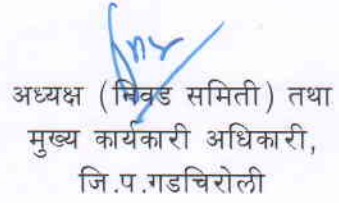 अध्यक्ष (निवड समिती) तथा
मुख्य कार्यकारी अधिकारी,
जि.प.गडचिरोली